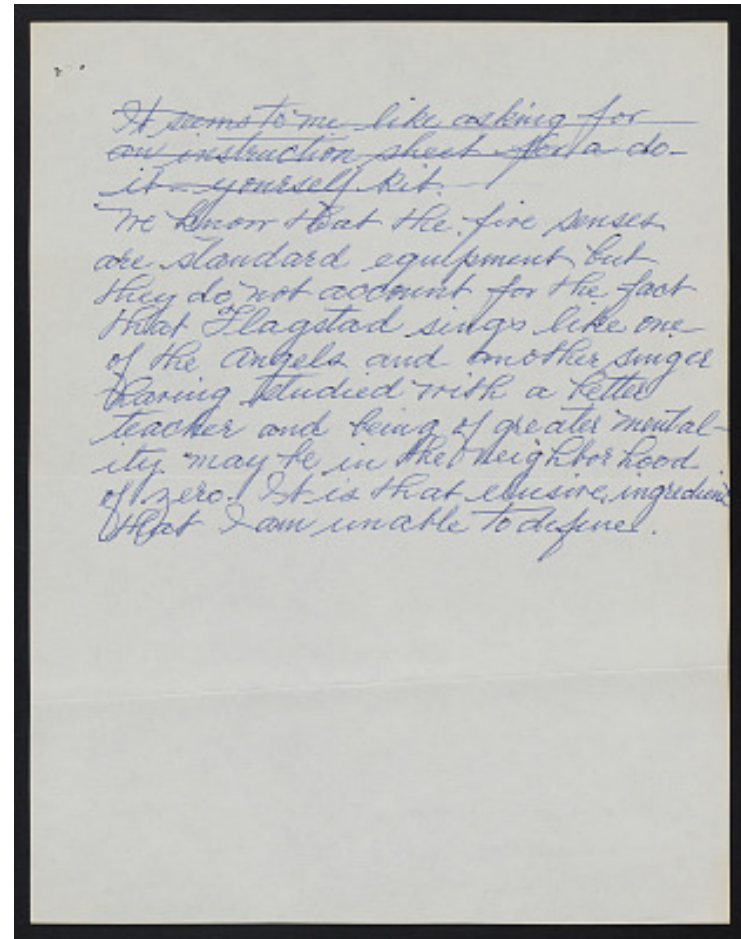 It seems to me like asking for
an instruction sheet for a do-
it-yourself kit.
We know that the five senses
are standard equipment but
they do not account for the fact
that Flagstad sings like one
of the angels and another singer
having studied with a better
teacher and being of greater mental-
ity may be in the neighborhood
of zero. It is that elusive ingredient
that I am unable to define.